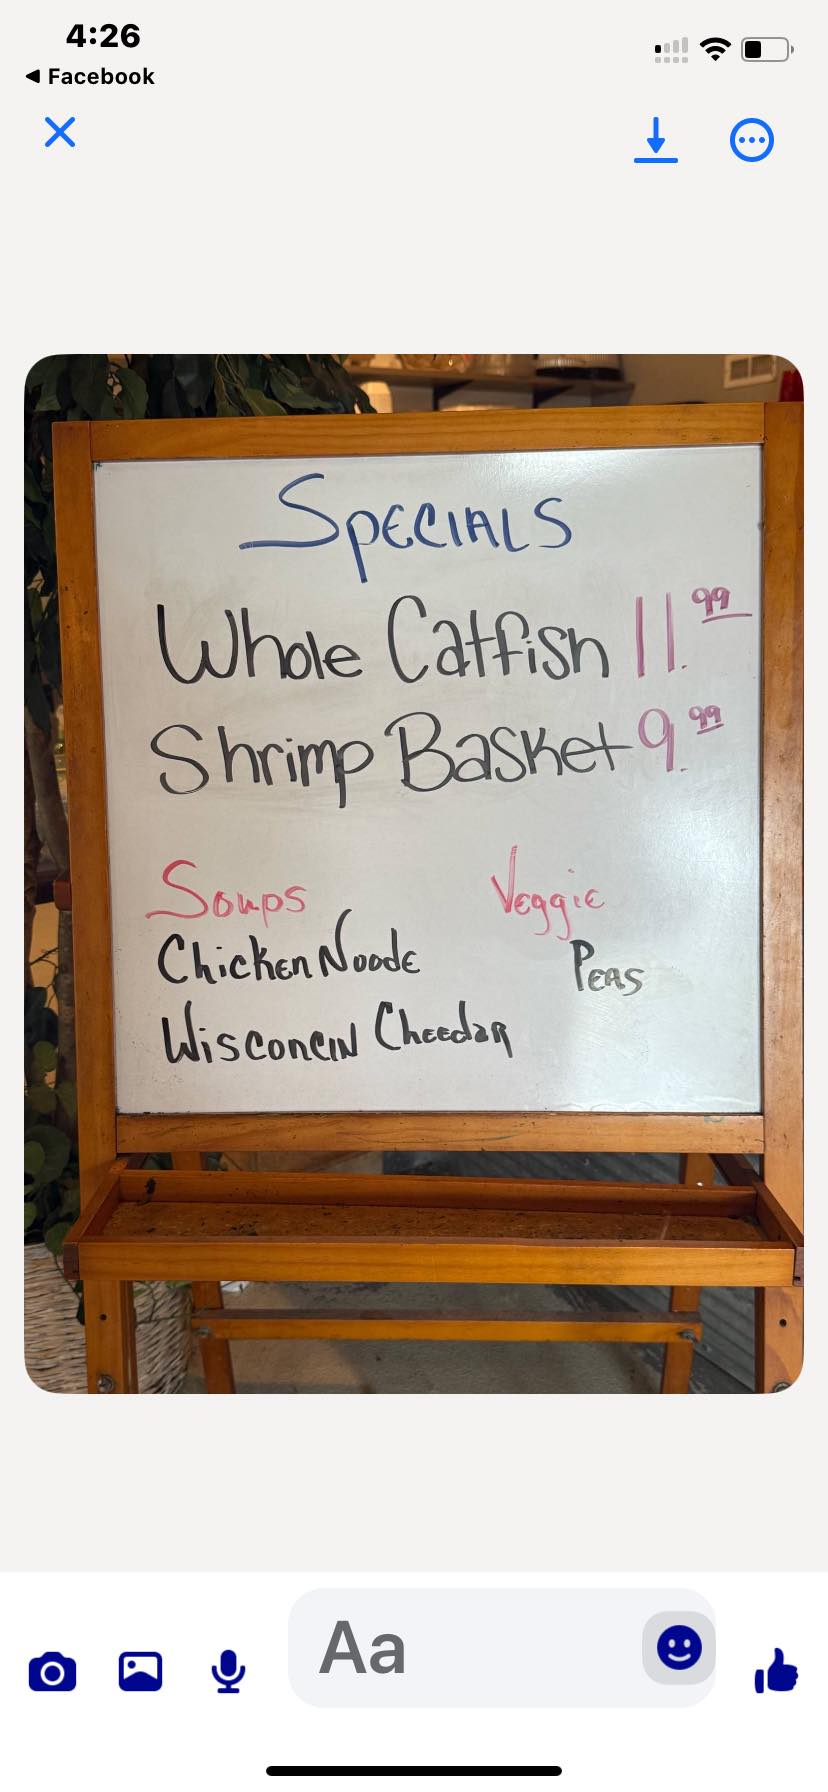 4:26
Facebook
Specials
Whole Catfish 11.99
Shrimp Basket 9.99
Soups
Veggie
Chicken Noode
Peas
Wisconcin Cheedar
Aa